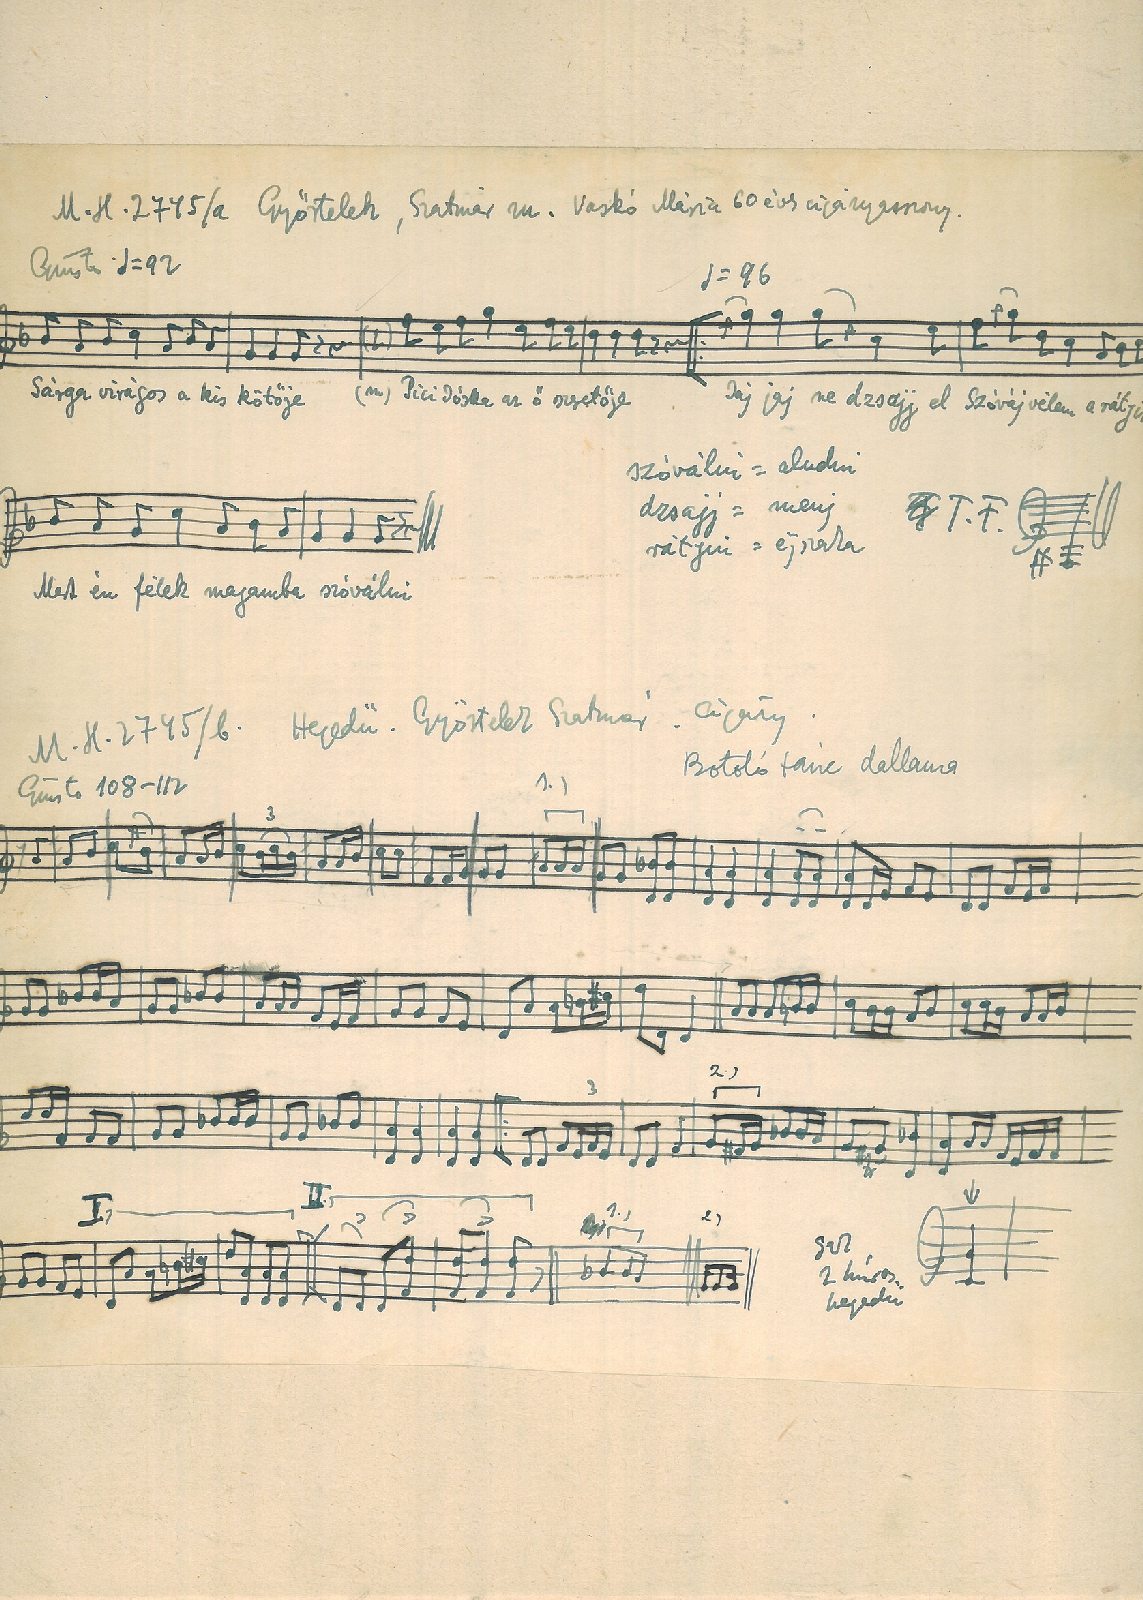 M.H. 2745/a Győrtelek, Szatmár m. Vaskó Mária 60 éves cigányasszony.
Giusto ♩=92
♩=96
Sárga virágos a kis kötője (m) Pici Jóska az ő szeretője Jaj jaj ne dzsajj el Szóváj vélem a rátyi
szóválni = aludni
dzsajj = menj
rátyni = éjszaka
T.F.
Mert én félek magamba szóválni
M.H. 2745/b. Hegedű. Győrtelek Szatmár. cigány.
Botoló tánc dallama
Giusto 108-112
1.)
3
3
2.)
I.
II.
1.)
2.)
2 húros
hegedű